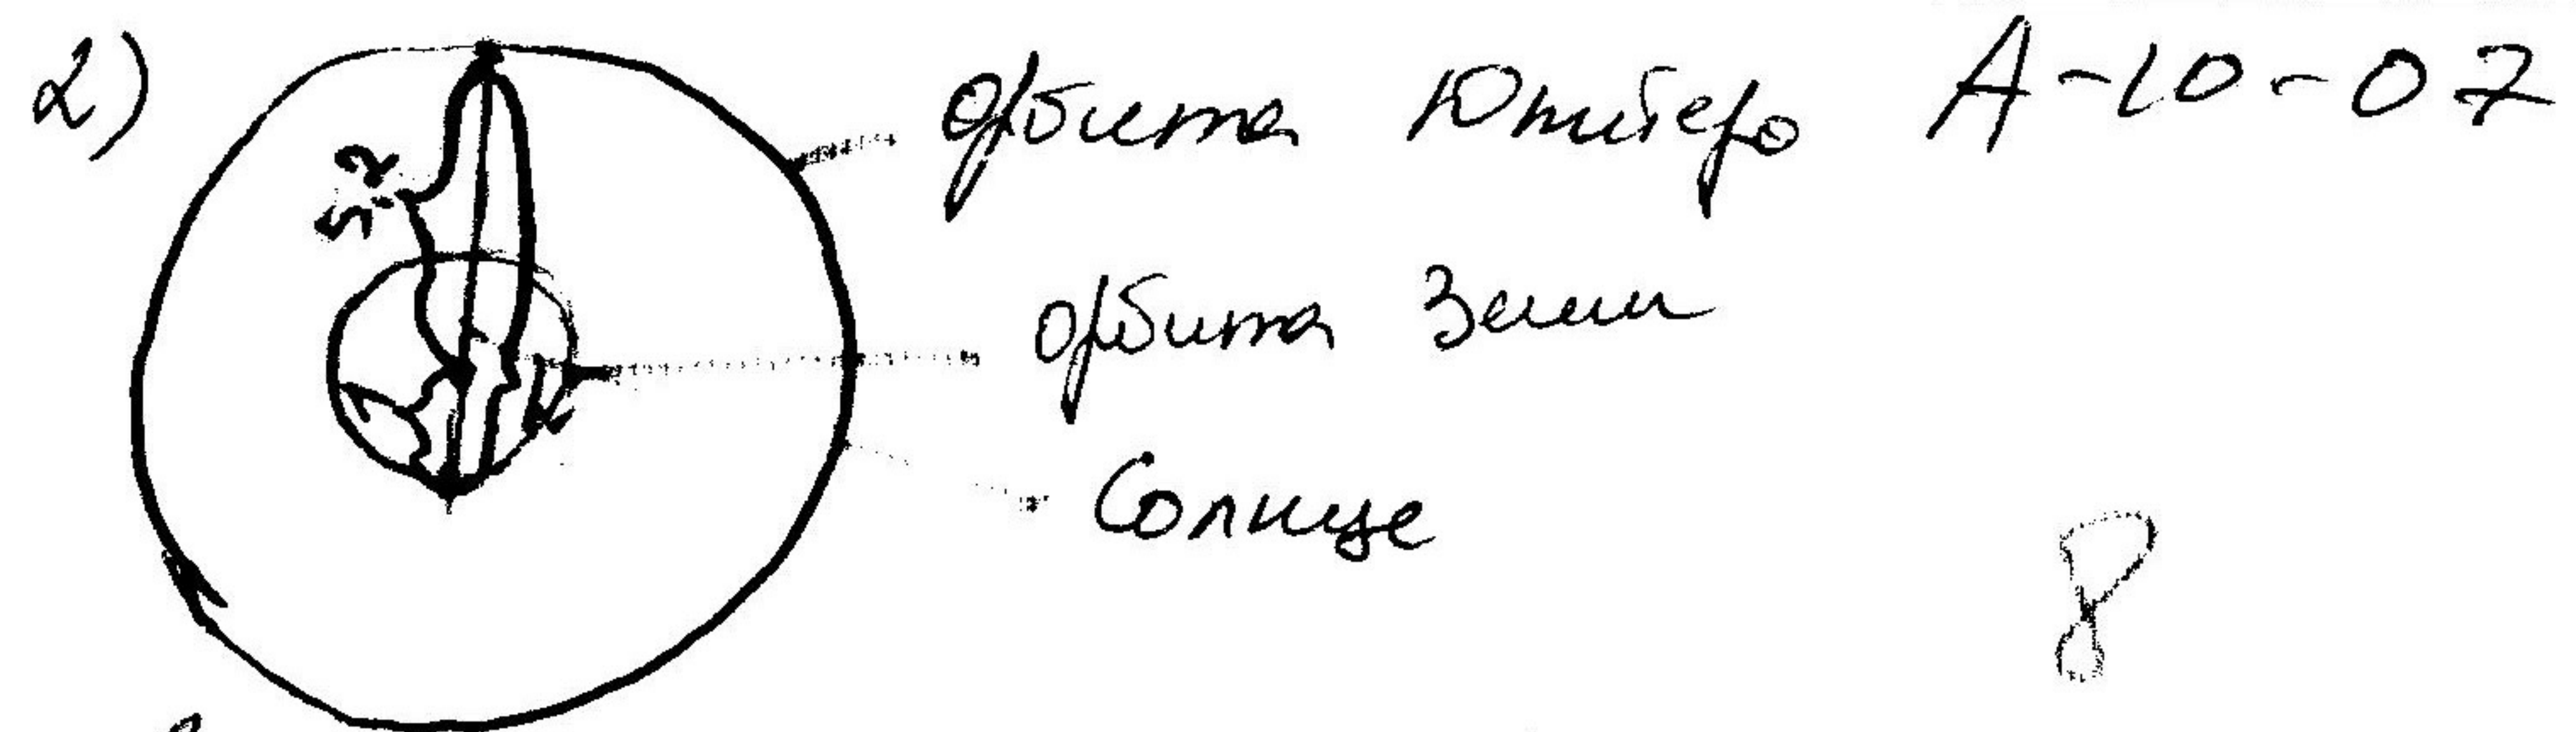 2)
орбита Юпитера А-10-07
5,2
орбита Земли
1
Солнце
8